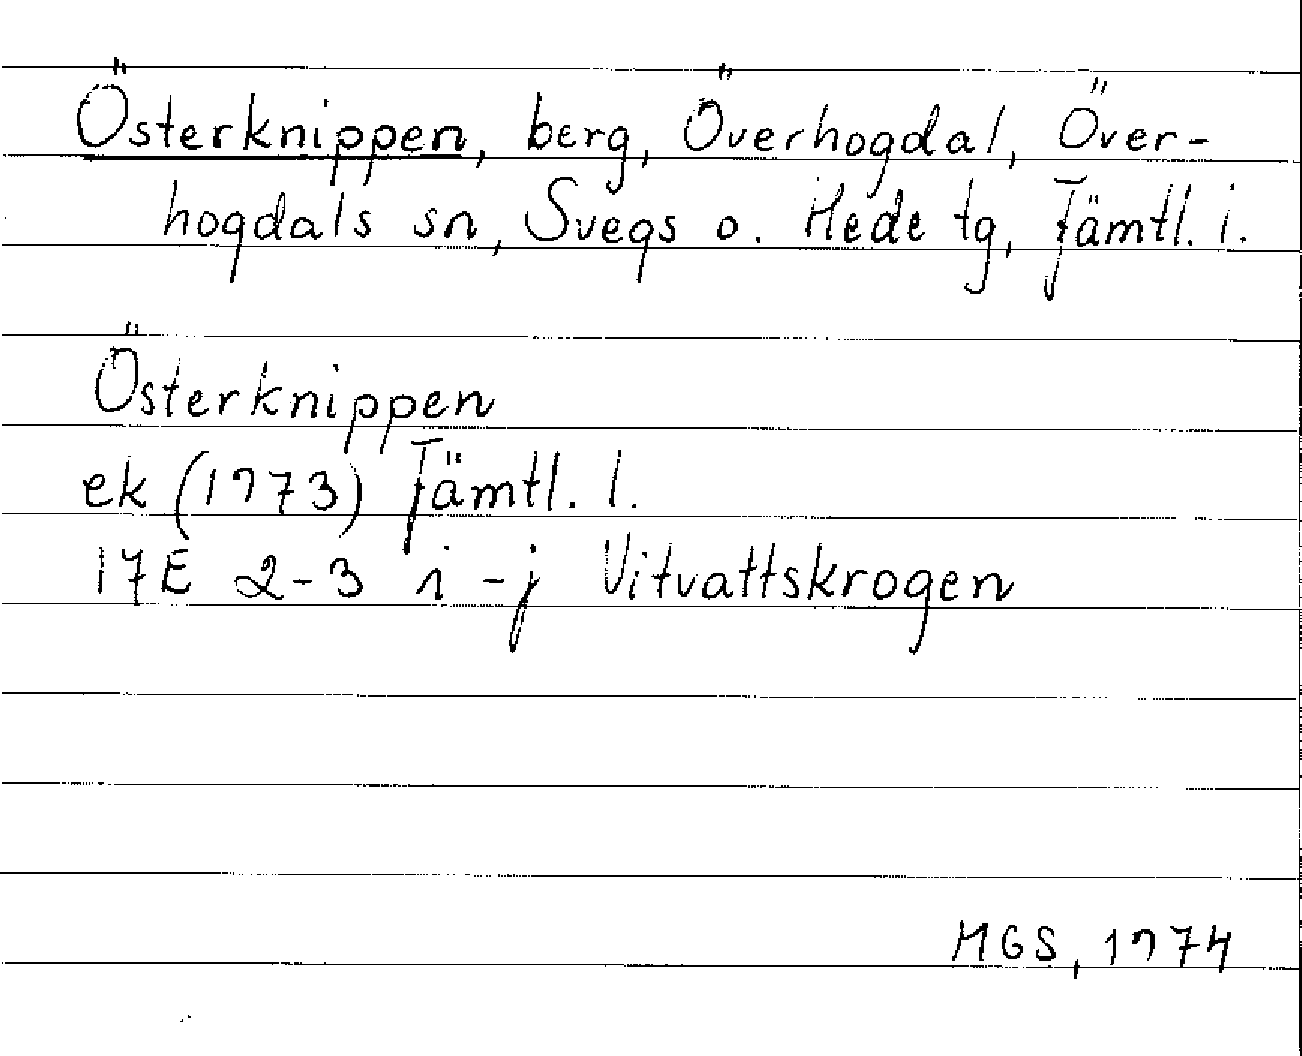 Österknippen, berg, Överhogdal, Över-
hogdals sn, Svegs o. Hede tg, Jämtl. l.
Österknippen
ek (1973) Jämtl. l.
17E 2-3 i-j Vitvattskrogen
MGS, 1974